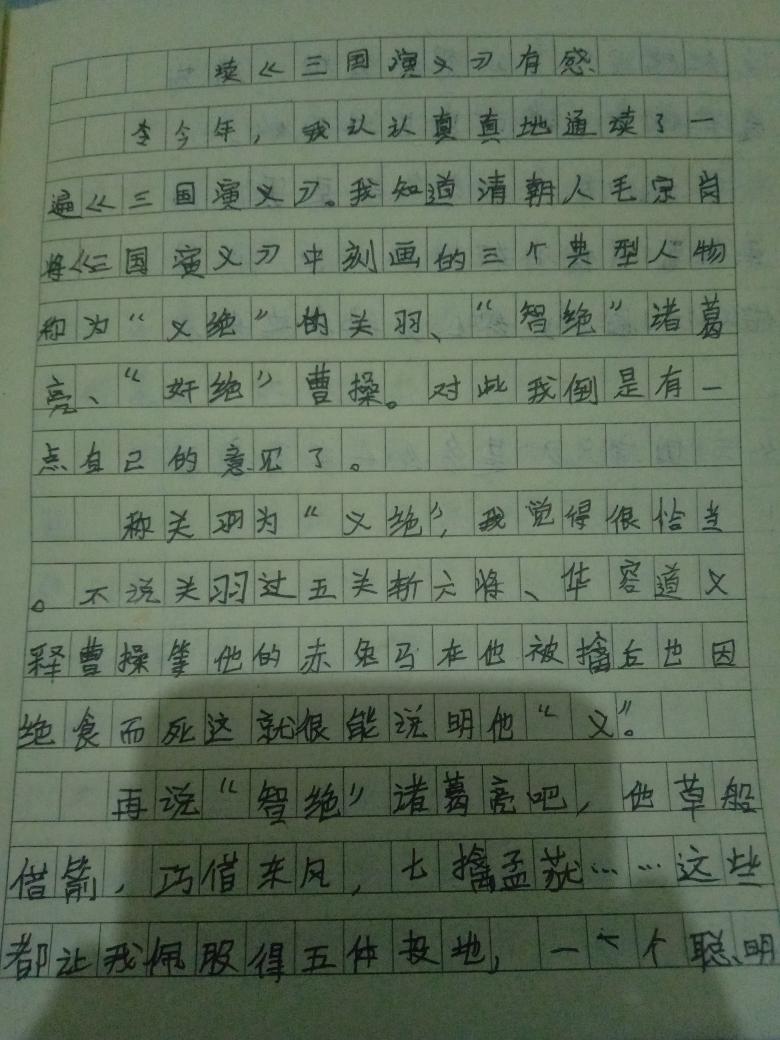 读《三国演义》有感
今年，我认认真真地通读了一
遍《三国演义》。我知道清朝人毛宗岗
将《三国演义》中刻画的三个典型人物
称为“义绝”的关羽、“智绝”诸葛
亮、“奸绝”曹操。对此我倒是有一
点自己的意见了。
称关羽为“义绝”，我觉得很恰当
。不说关羽过五关斩六将、华容道义
释曹操等他的赤兔马在他被擒后也因
绝食而死这就很能说明他“义”。
再说“智绝”诸葛亮吧，他草船
借箭，巧借东风，七擒孟获……这些
都让我佩服得五体投地，一个个聪明